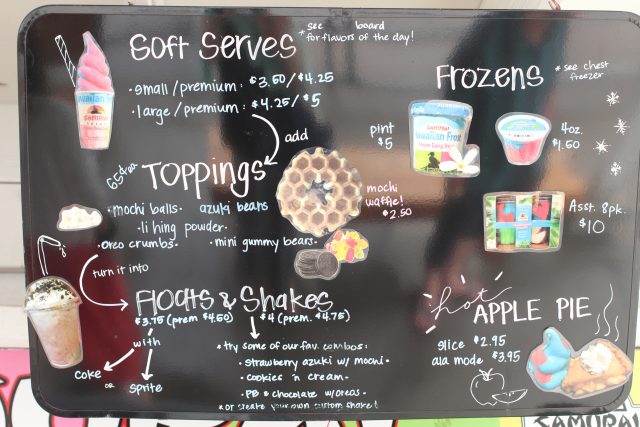 Soft Serves
*see board
for flavors of the day!
small/premium: $3.50/$4.25
large/premium: $4.25/$5
add
65¢/ea
Toppings
•mochi balls• azuki beans
•li hing powder•
•oreo crumbs• •mini gummy bears•
mochi
waffle!
$2.50
turn it into
Floats & Shakes
$3.75 (prem $4.50) $4 (prem. $4.75)
with
coke or sprite
*try some of our fav. combos:
• strawberry azuki w/ mochi•
• cookies 'n cream•
• PB & chocolate w/oreos•
*or create your own custom shake!
Frozens
*see chest
freezer
pint
$5
4oz.
$1.50
Asst. 8pk.
$10
hot
APPLE PIE
slice $2.95
ala mode $3.95
SAMURAI